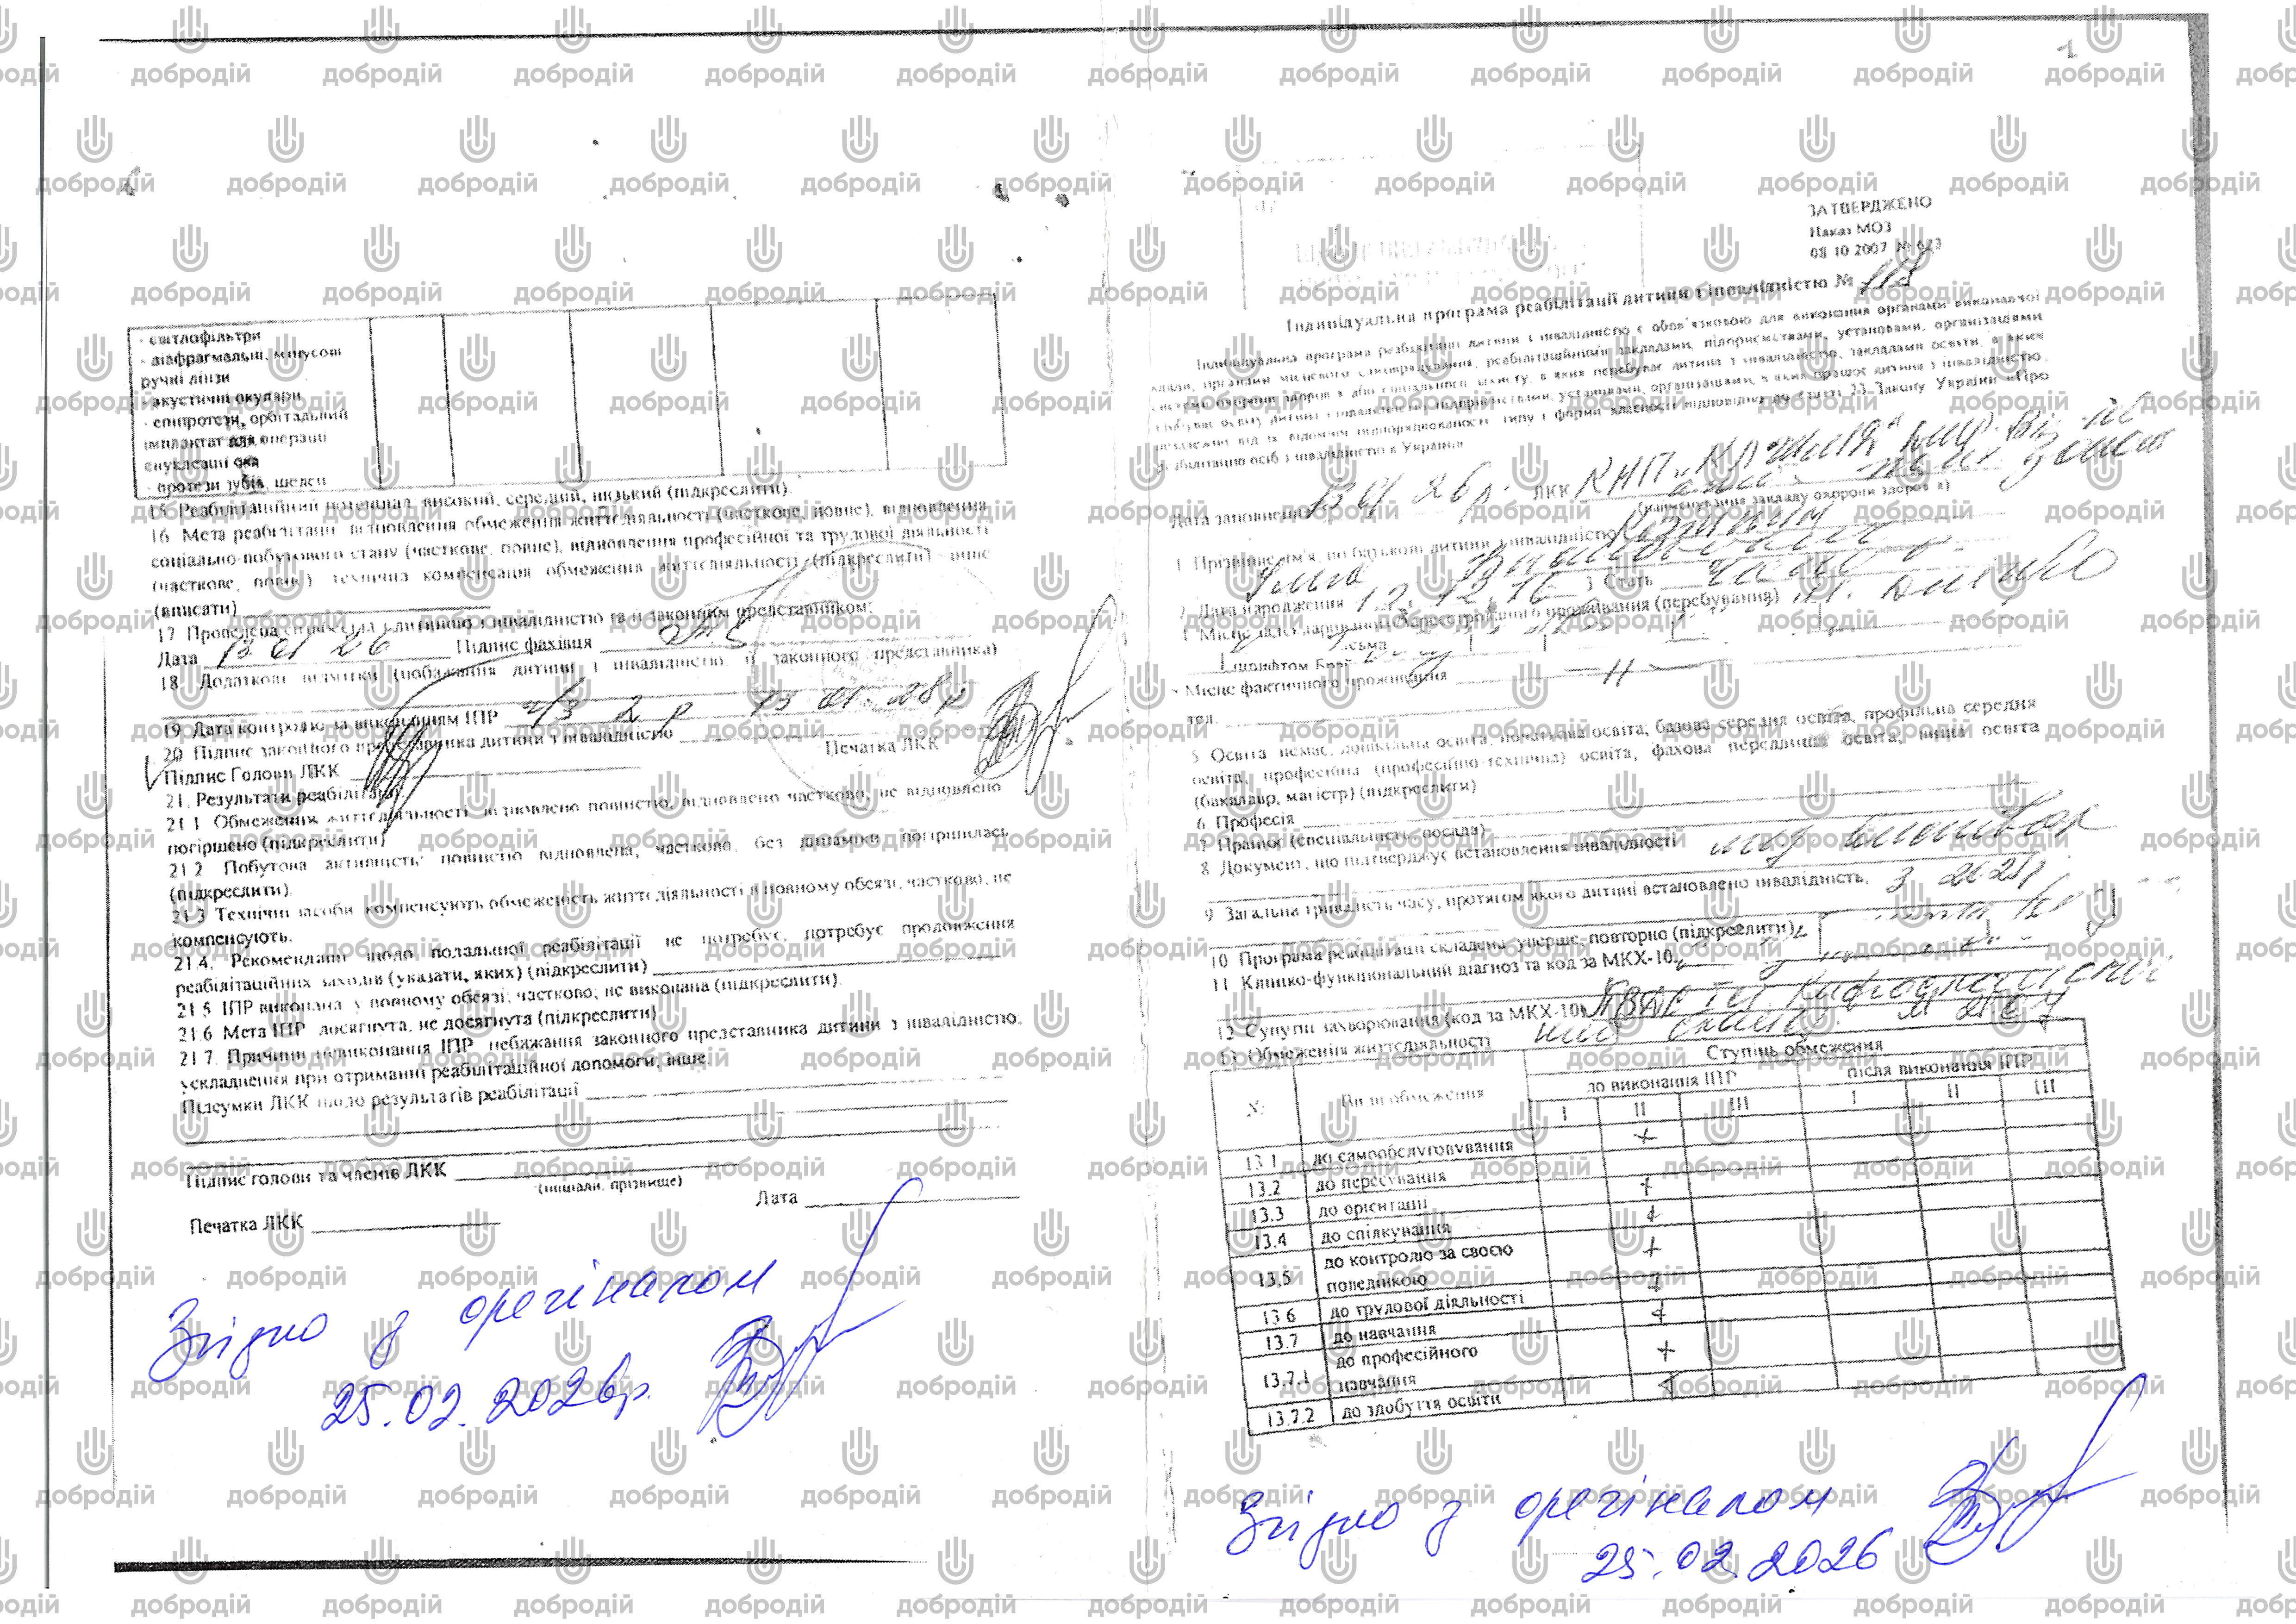 - світлофільтри
- діафрагмальні, мінусові
ручні лінзи
- акустичні окуляри
- епіпротези, орбітальний
імплантат для операції
енуклеації ока
- протези зубів, щелеп
15. Реабілітаційний потенціал: високий, середній, низький (підкреслити).
16. Мета реабілітації: відновлення обмеження життєдіяльності (часткове, повне), відновлення
соціально-побутового стану (часткове, повне), відновлення професійної та трудової діяльності
(часткове, повне), технічна компенсація обмеження життєдіяльності (підкреслити), інше
(вписати)
17. Проведена співбесіда з дитиною з інвалідністю та її законним представником:
Дата 13 01 26 Підпис фахівця
18. Додаткові відмітки (побажання дитини з інвалідністю, її законного представника)
19. Дата контролю за виконанням ІПР ч/з 2 р 13 01 28р
20. Підпис законного представника дитини з інвалідністю
Підпис Голови ЛКК Печатка ЛКК
21. Результати реабілітації:
21.1. Обмеження життєдіяльності: відновлено повністю, відновлено частково, не відновлено
погіршено (підкреслити)
21.2. Побутова активність: повністю відновлена, частково, без динаміки, погіршилась
(підкреслити).
21.3. Технічні засоби компенсують обмеженість життєдіяльності в повному обсязі, частково, не
компенсують.
21.4. Рекомендації щодо подальшої реабілітації: не потребує, потребує продовження
реабілітаційних заходів (указати, яких) (підкреслити)
21.5. ІПР виконана: у повному обсязі; частково; не виконана (підкреслити).
21.6. Мета ІПР: досягнута, не досягнута (підкреслити)
21.7. Причини невиконання ІПР: небажання законного представника дитини з інвалідністю,
ускладнення при отриманні реабілітаційної допомоги; інше
Підсумки ЛКК щодо результатів реабілітації
Підпис голови та членів ЛКК
(ініціали, прізвище)
Дата
Печатка ЛКК
Згідно з орегіналом
25.02.2026р.
ЗАТВЕРДЖЕНО
Наказ МОЗ
08.10.2007 № 623
Індивідуальна програма реабілітації дитини з інвалідністю № 118
Індивідуальна програма реабілітації дитини з інвалідністю є обов'язковою для виконання органами виконавчої
влади, органами місцевого самоврядування, реабілітаційними закладами, підприємствами, установами, організаціями
системи охорони здоров'я або соціального захисту, в яких перебуває дитина з інвалідністю, закладами освіти, в яких
здобуває освіту дитина з інвалідністю, підприємствами, установами, організаціями, в яких працює дитина з інвалідністю,
незалежно від їх відомчої підпорядкованості, типу і форми власності відповідно до статті 23 Закону України «Про
реабілітацію осіб з інвалідністю в Україні»
Дата заповнення 13 01 26р. ЛКК КНП
(найменування закладу охорони здоров'я)
1. Прізвище, ім'я, по батькові дитини з інвалідністю
2. Дата народження 12. 12.16 3. Стать
4. Місце задекларованого/зареєстрованого проживання (перебування)
Місце фактичного проживання — // —
тел.
5. Освіта: немає, дошкільна освіта, початкова освіта, базова середня освіта, профільна середня
освіта, професійна (професійно-технічна) освіта, фахова передвища освіта, вища освіта
(бакалавр, магістр) (підкреслити)
6. Професія
7. Працює (спеціальність, посада)
8. Документ, що підтверджує встановлення інвалідності мед висновок
9. Загальна тривалість часу, протягом якого дитині встановлено інвалідність, з
10. Програма реабілітації складена: уперше, повторно (підкреслити)
11. Клініко-функціональний діагноз та код за МКХ-10
12. Супутні захворювання (код за МКХ-10)
13. Обмеження життєдіяльності
№ Види обмеження Ступінь обмеження
до виконання ІПР після виконання ІПР
I II III I II III
13.1 до самообслуговування +
13.2 до пересування
13.3 до орієнтації +
13.4 до спілкування +
13.5 до контролю за своєю
поведінкою +
13.6 до трудової діяльності +
13.7 до навчання +
13.7.1 до професійного
навчання +
13.7.2 до здобуття освіти +
Згідно з орегіналом
25.02.2026
добродій